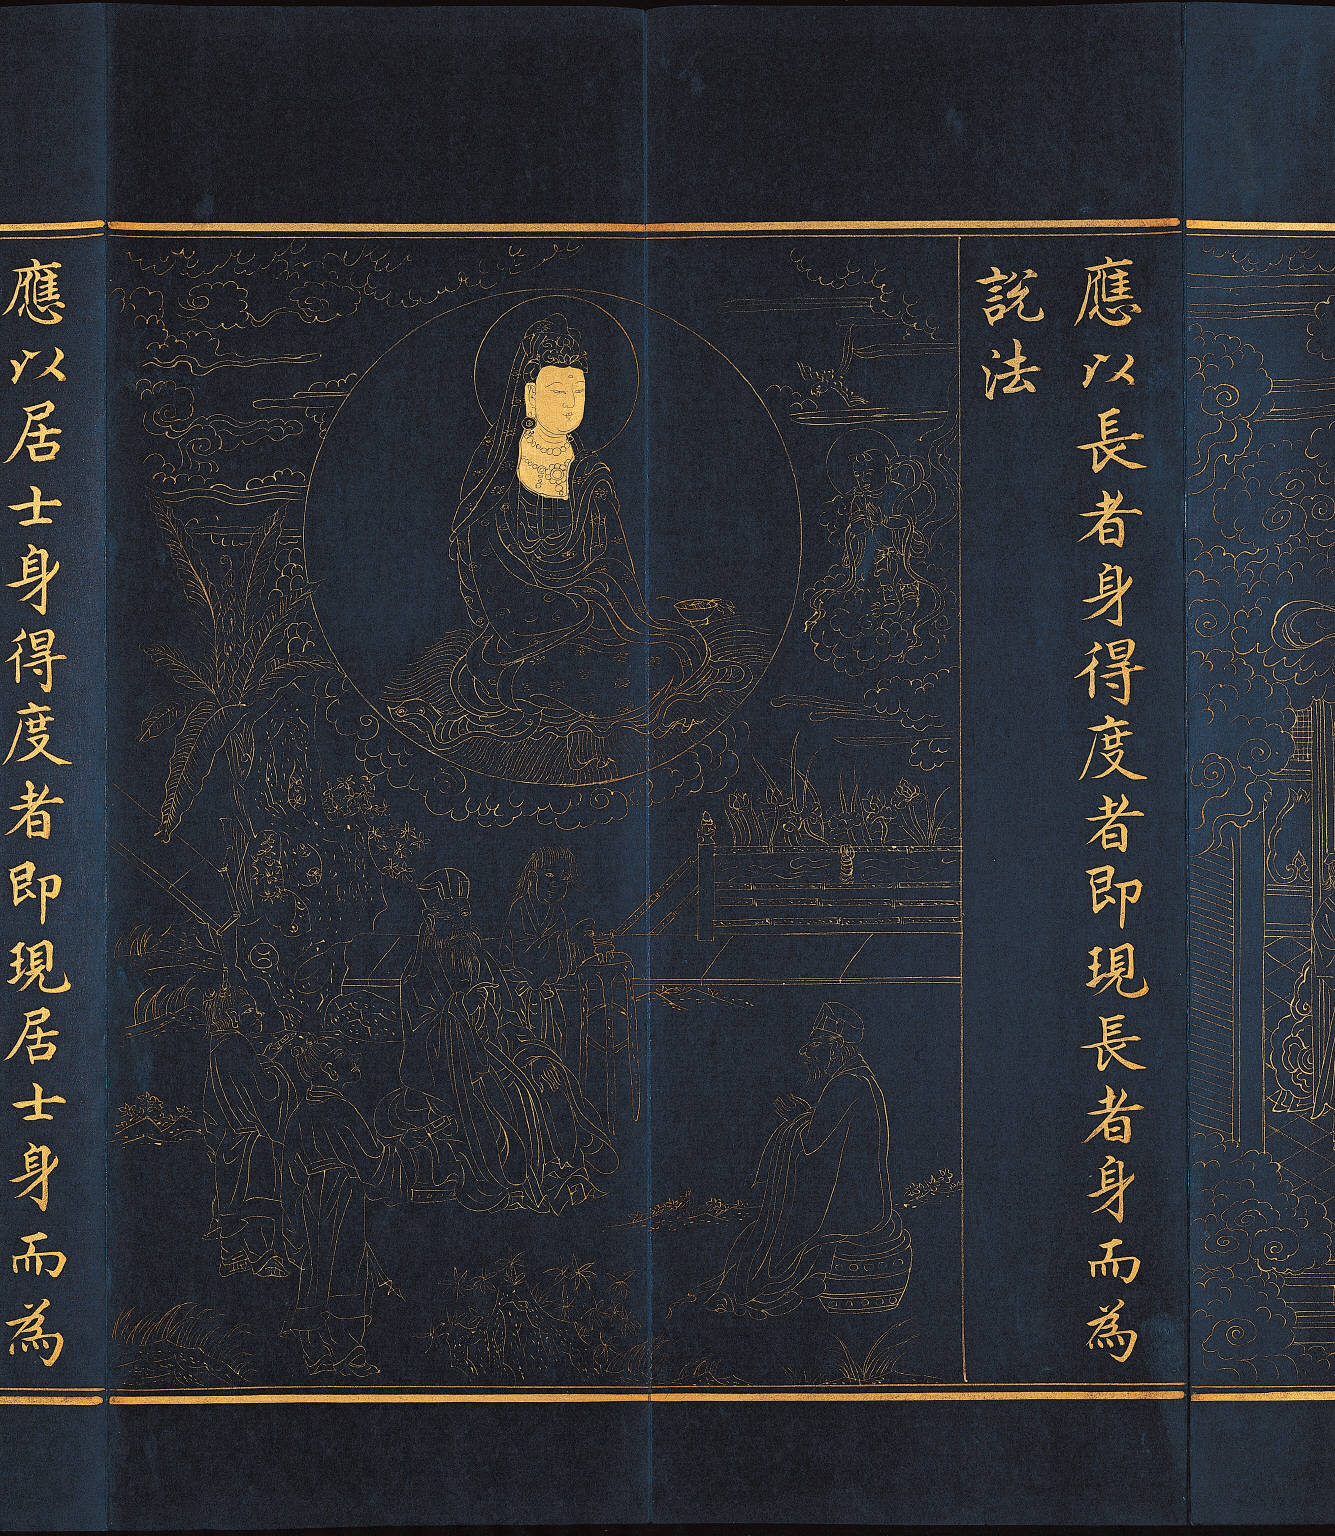 應以長者身得度者即現長者身而為
說法
應以居士身得度者即現居士身而為